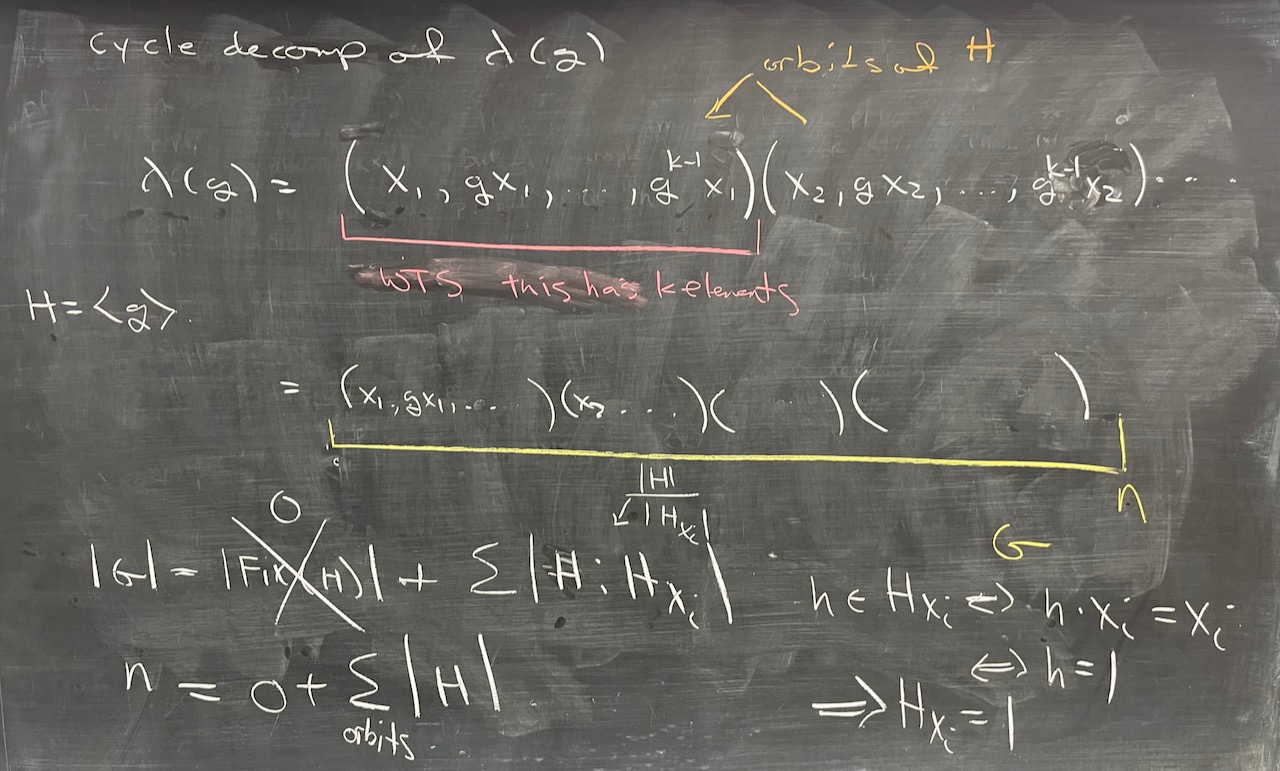 cycle decomp of λ(g)
orbits of H
λ(g) = (x₁, gx₁, ..., gᵏ⁻¹x₁)(x₂, gx₂, ..., gᵏ⁻¹x₂)...
WTS this has k elements
H = <g>.
= (x₁, gx₁, ... )(x₂ ... )( ... )( )
n
G
|H| / |H_{xᵢ}|
0
|G| = |Fix(H)| + Σ |H : H_{xᵢ}|
h ∈ H_{xᵢ} ⇔ h·xᵢ = xᵢ
⇔ h = 1
n = 0 + Σ |H|
orbits
⇒ H_{xᵢ} = 1